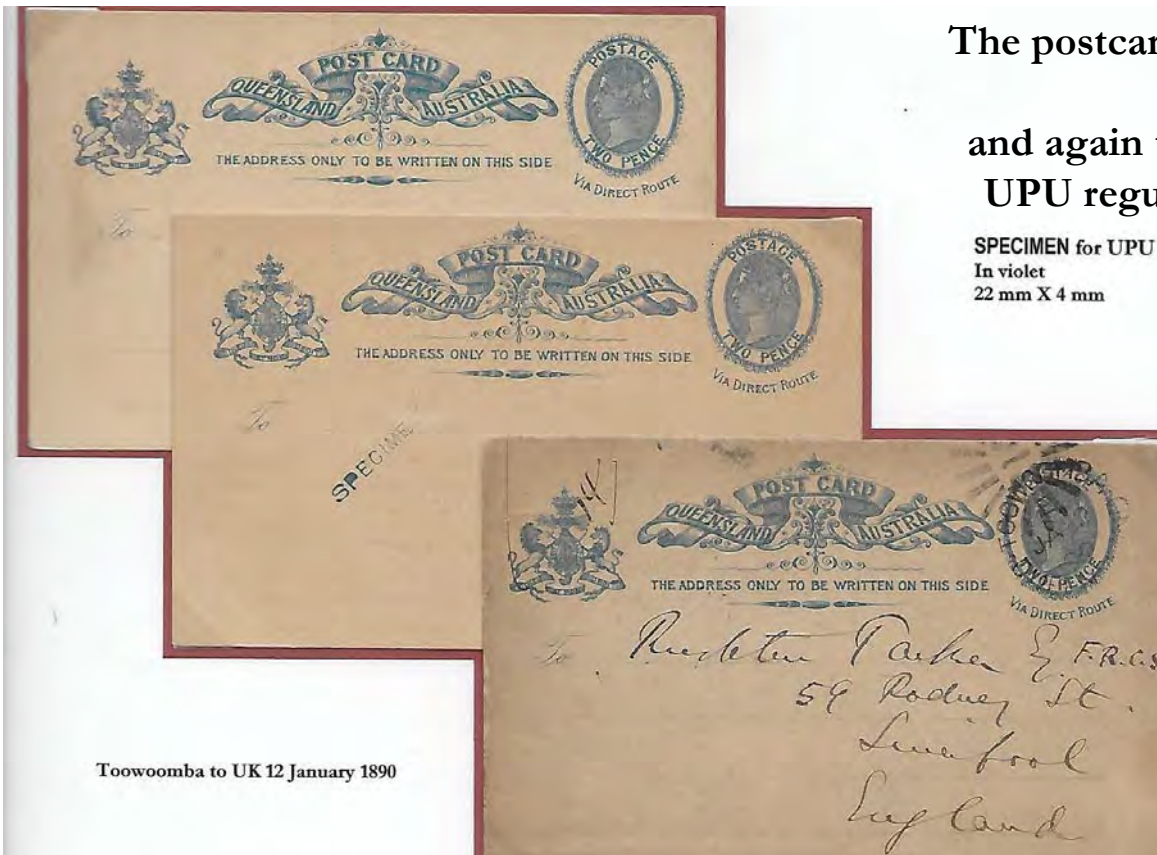 The postcar
and again
UPU regu
SPECIMEN for UPU
In violet
22 mm X 4 mm
POST CARD
QUEENSLAND AUSTRALIA
THE ADDRESS ONLY TO BE WRITTEN ON THIS SIDE
POSTAGE
TWO PENCE
VIA DIRECT ROUTE
To
POST CARD
QUEENSLAND AUSTRALIA
THE ADDRESS ONLY TO BE WRITTEN ON THIS SIDE
POSTAGE
TWO PENCE
VIA DIRECT ROUTE
To
SPECIME
POST CARD
QUEENSLAND AUSTRALIA
THE ADDRESS ONLY TO BE WRITTEN ON THIS SIDE
POSTAGE
TWO PENCE
VIA DIRECT ROUTE
To
Rushton Parker Esq F.R.C.S
59 Rodney St.
Liverpool
England
Toowoomba to UK 12 January 1890